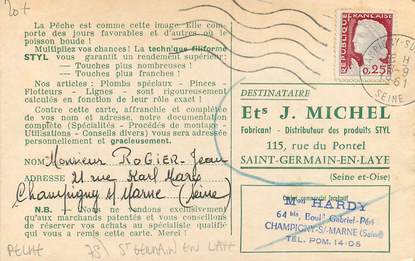 20+
La Pêche est comme cette image. Elle com-
porte des jours favorables et d'autres où le
poisson boude !
Multipliez vos chances! La technique filiforme
STYL vous garantit un rendement supérieur:
— Touches plus nombreuses !
— Touches plus franches !
Nos articles : Plombs spéciaux - Pinces
Flotteurs - Lignes - sont rigoureusement
calculés en fonction de leur rôle exact !
Contre cette carte, affranchie et complétée
de vos nom et adresse, notre documentation
complète (Spécialités - Procédés de montage
Utilisations - Conseils divers) vous sera adressée
personnellement et gracieusement.
NOM Monsieur ROGIER Jean
ADRESSE 21 rue Karl Marx
Champigny s/ Marne (Seine)
N.B. - Nous ne vendons exclusivement
qu'aux marchands patentés et vous conseillons
de réserver vos achats au spécialiste qualifié
qui vous a remis cette carte. Merci.
PECHE 78) ST GERMAIN EN LAYE
REPUBLIQUE FRANÇAISE
0,25
SEINE
DESTINATAIRE
Ets J. MICHEL
Fabricant - Distributeur des produits STYL
115, rue du Pontel
SAINT-GERMAIN-EN-LAYE
(Seine-et-Oise)
Mon HARDY
64 bis, Boul. Gabriel-Péri
CHAMPIGNY-S/-MARNE (Seine)
TÉL. POM. 14-06